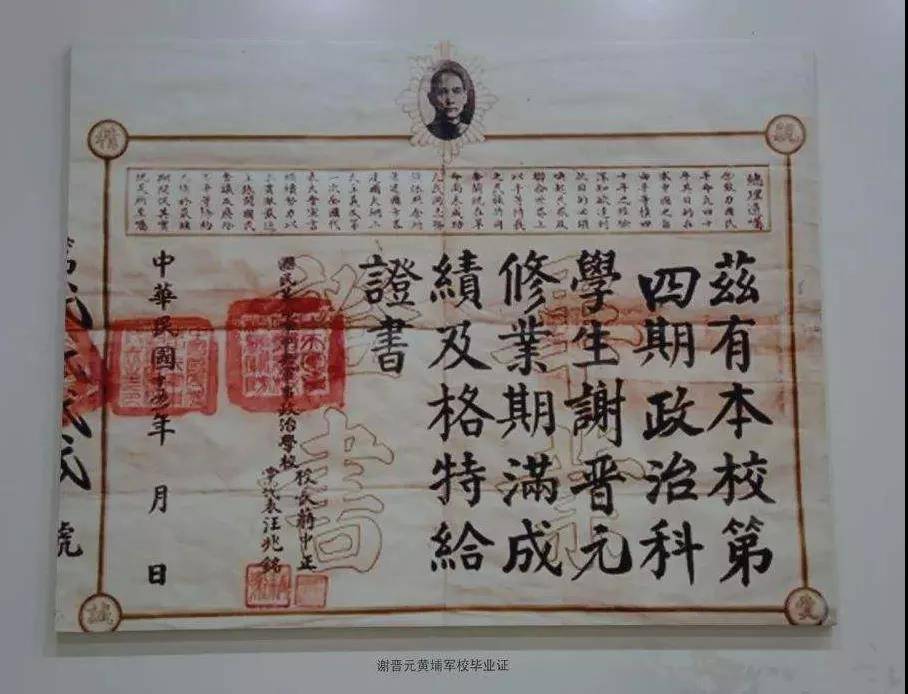 親
愛
精
誠
總理遺囑
余致力國民
革命凡四十
年其目的在
求中國之自
由平等積四
十年之經驗
深知欲達到
此目的必須
喚起民眾及
聯合世界上
以平等待我
之民族共同
奮鬥現在革
命尚未成功
凡我同志務
須依照余所
著建國方略
建國大綱三
民主義及第
一次全國代
表大會宣言
繼續努力以
求貫徹最近
主張開國民
會議及廢除
不平等條約
尤須於最短
期間促其實
現是所至囑
茲有本校第
四期政治科
學生謝晉元
修業期滿成
績及格特給
證書
畢業
證書
國民革命軍中央軍事政治學校
校長蔣中正
黨代表汪兆銘
中華民國十五年 月 日
號
谢晋元黄埔军校毕业证